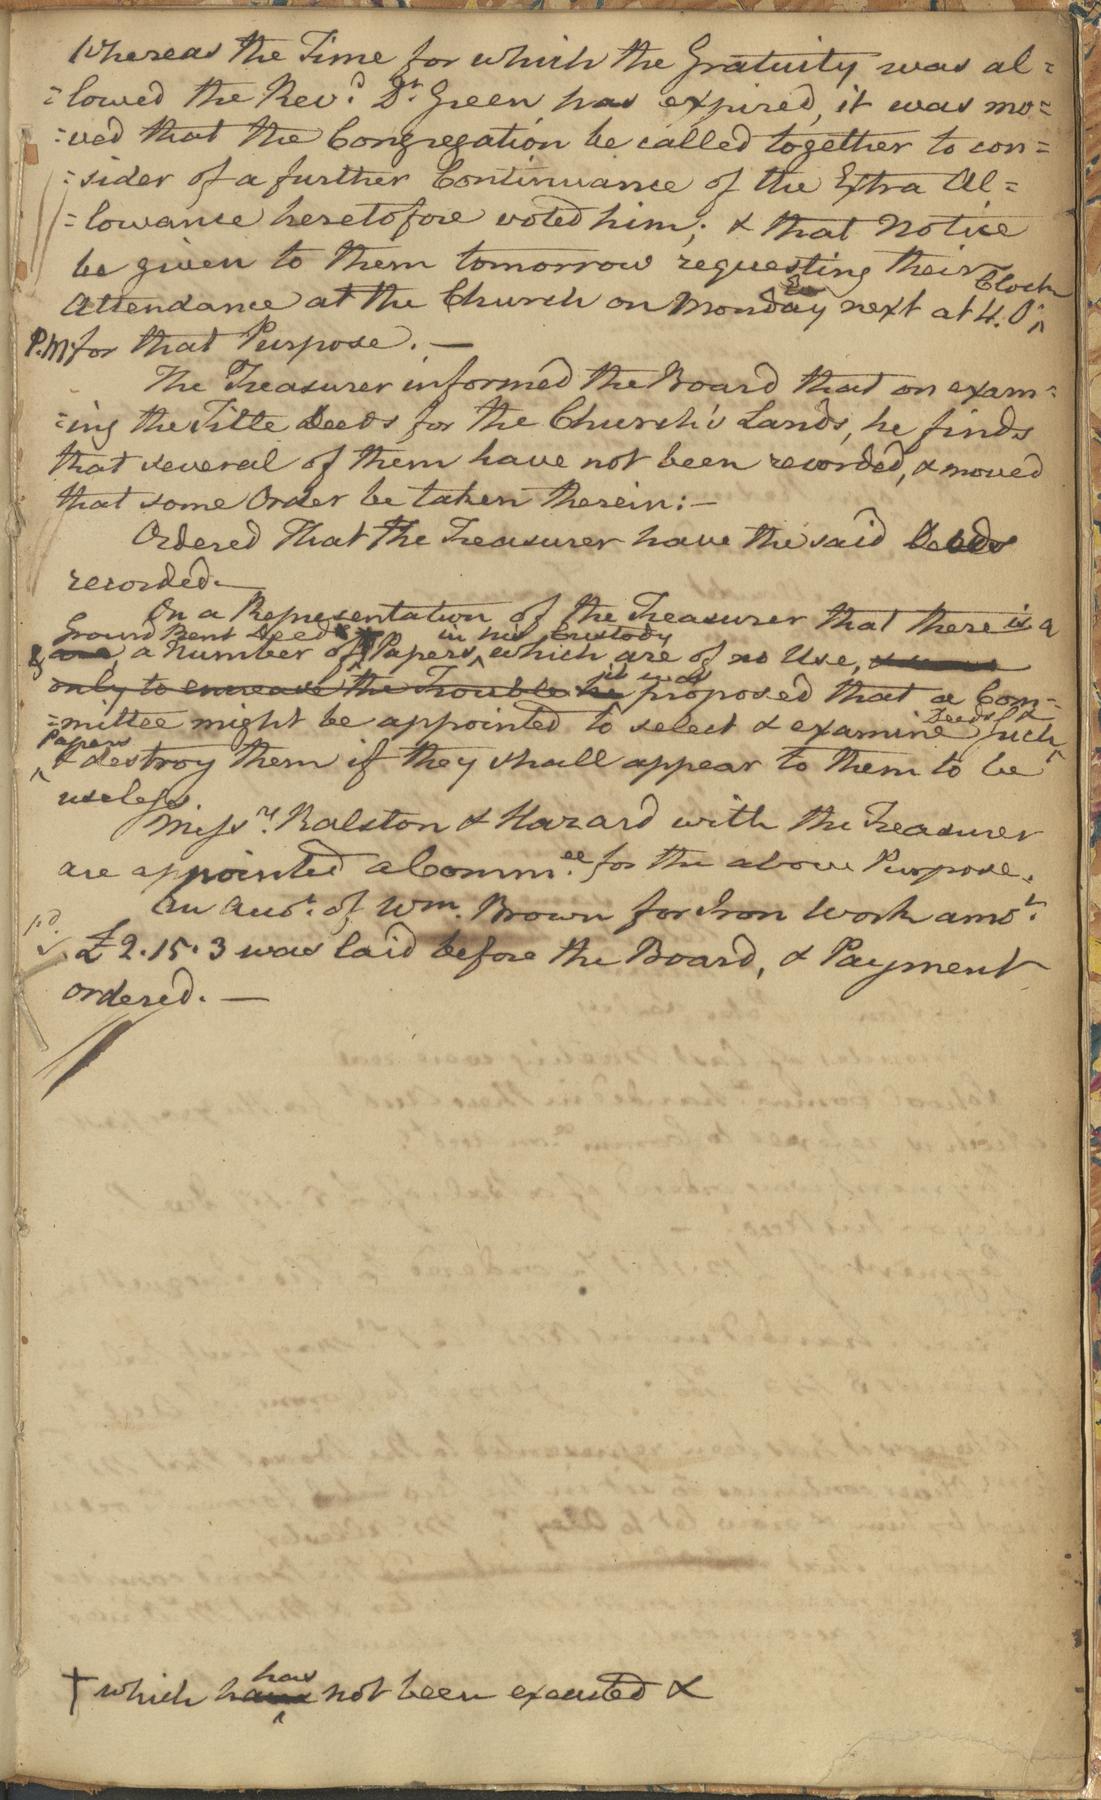 Whereas the Time for which the Gratuity was al=
=lowed the Rev.d Dr. Green has expired, it was mo=
=ved that the Congregation be called together to con=
=sider of a further Continuance of the Extra Al=
=lowance heretofore voted him; & that Notice
be given to them tomorrow requesting their
Attendance at the Church on Monday next at 4. O' Clock
P.M. for that Purpose. —
The Treasurer informed the Board that on exam=
=ing the Title Deeds for the Church's Lands, he finds
that several of them have not been recorded, & moved
that some Order be taken therein: —
Ordered That the Treasurer have the said Deeds
recorded. —
On a Representation of the Treasurer that there is a
Ground Rent Deed † in his Custody
& are a number of Papers, which are of no Use, &
only to encrease the Trouble he it was proposed that a Com=
=mittee might be appointed to select & examine such Deeds &
Papers & destroy them if they shall appear to them to be
useless.
Messrs. Ralston & Hazard with the Treasurer
are appointed a Comm.ee for the above Purpose.
An Acco.t of Wm. Brown for Iron Work amo.t
p.d £2.15.3 was laid before the Board, & Payment
ordered. —
† which have has not been executed &